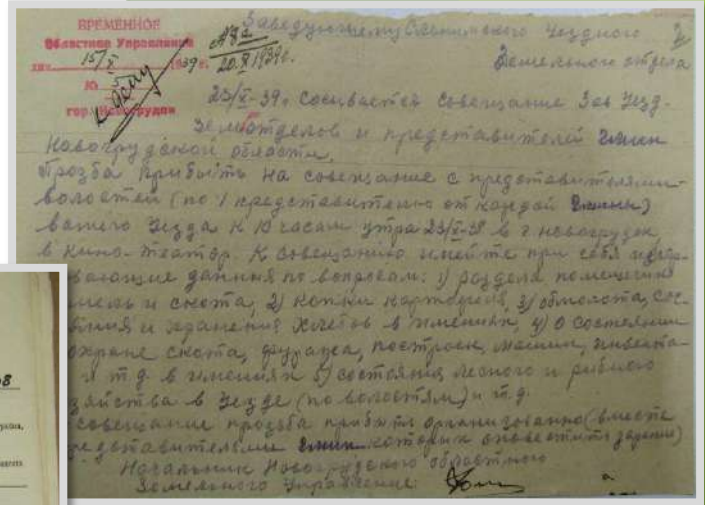 ВРЕМЕННОЕ
Областное Управление
15/X 1939 г.
№ 5
гор. Новогрудок
к делу
№ 8а
20.X 1939 г.
2
Заведующему Уездного
Земельного отдела
23/X-39г. Созивается совещание Зав Уезд-
Земотделов и представителей гмин
Новогрудской области.
Прозба прибыть на совещание с представителями
волостей (по 1 представителю от каждой гмины)
вашего Уезда к 10 часам утра 23/X-39 в г новогрудок
в Кино-театор. К совещанию имейте при себя
данныя по вопросам: 1) раздела помещичих
земель и скота, 2) копки картофеля, 3) обмолота,
и хранения хлебов в имениях, 4) О состоянии
охране скота, фуража, построек, машин, инвента-
и т.д. в имениях 5) состояния лесного и рибного
зяйства в Уезде (по волостям) и т.д.
совещание прозба прибыть организованно (вместе
редставителями гмин которых оповестить заранее)
Начальник Новогрудского областного
Земельного Управления:
8